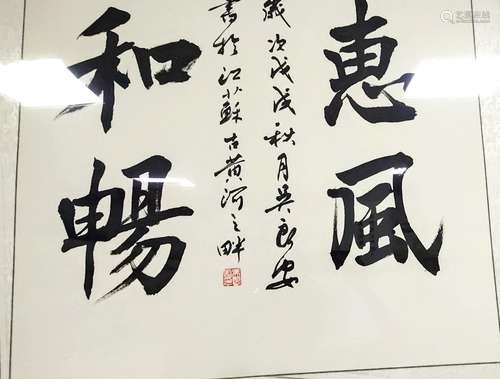 惠風
和暢
歲次戊戌秋月吳良安
書於江蘇古黃河之畔